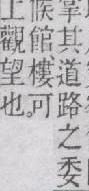 掌其道路之委
候館樓可
上觀望也。